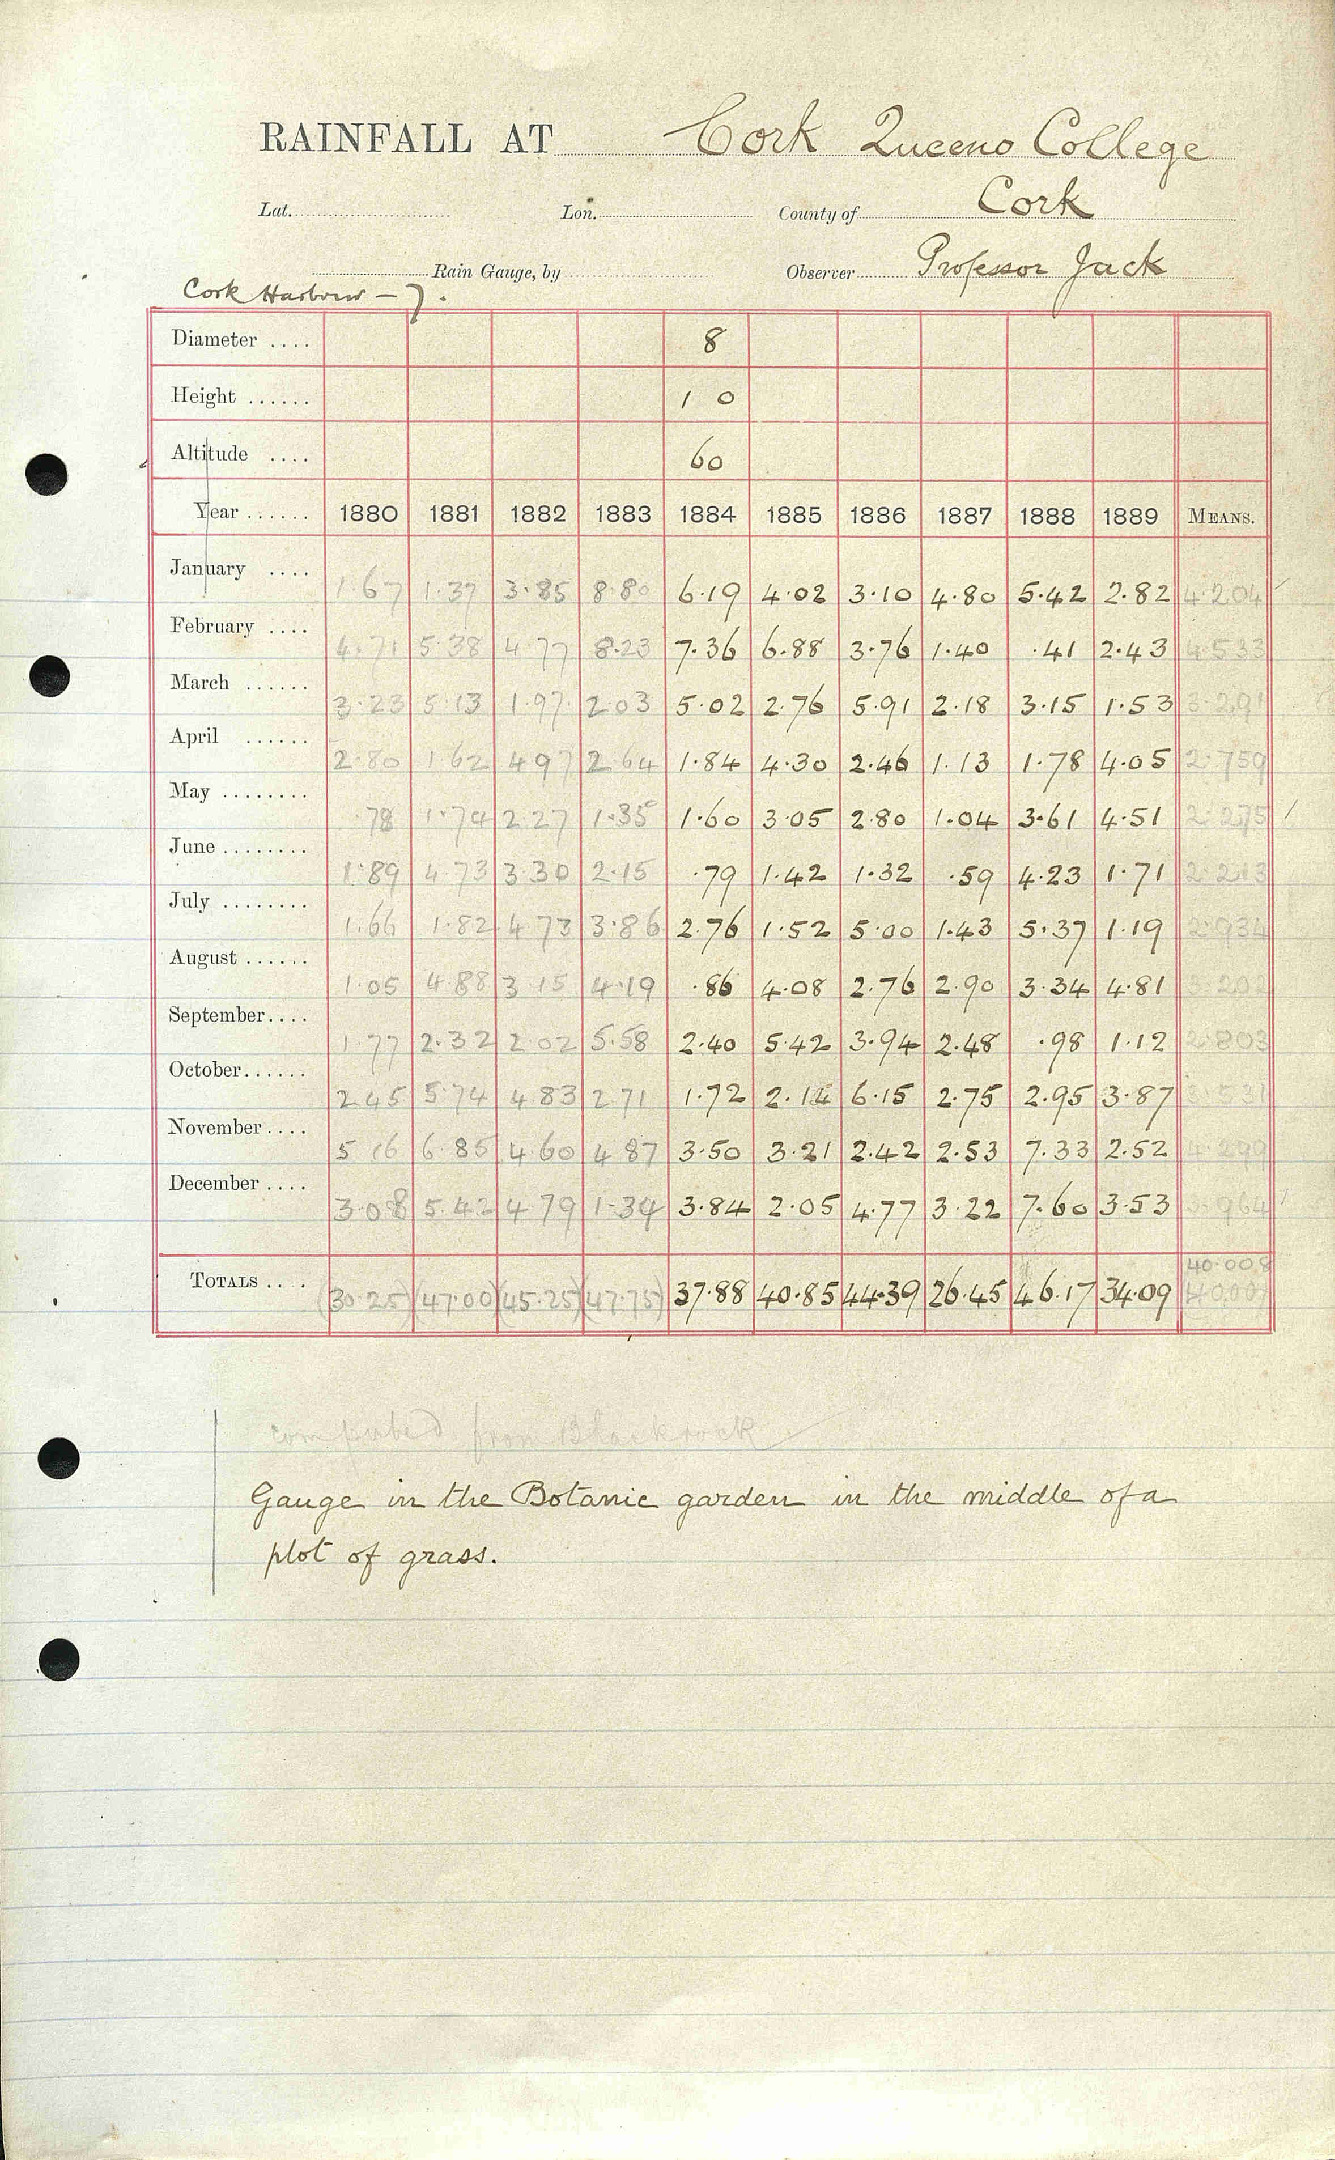 RAINFALL AT Cork Queens College
Lat. Lon. County of Cork
Rain Gauge, by Observer Professor Jack
Cork Harbour – 7.
Diameter .... 8
Height ...... 1 0
Altitude .... 60
Year ...... 1880 1881 1882 1883 1884 1885 1886 1887 1888 1889 MEANS.
January .... 1.67 1.37 3.85 8.80 6.19 4.02 3.10 4.80 5.42 2.82 4.204
February .... 4.71 5.38 4.77 8.23 7.36 6.88 3.76 1.40 .41 2.43 4.533
March ...... 3.23 5.13 1.97 2.03 5.02 2.76 5.91 2.18 3.15 1.53 3.291
April ...... 2.80 1.62 4.97 2.64 1.84 4.30 2.46 1.13 1.78 4.05 2.759
May ........ .78 1.74 2.27 1.35 1.60 3.05 2.80 1.04 3.61 4.51 2.275
June ........ 1.89 4.73 3.30 2.15 .79 1.42 1.32 .59 4.23 1.71 2.213
July ........ 1.66 1.82 4.73 3.86 2.76 1.52 5.00 1.43 5.37 1.19 2.934
August ...... 1.05 4.88 3.15 4.19 .86 4.08 2.76 2.90 3.34 4.81 3.202
September.... 1.77 2.32 2.02 5.58 2.40 5.42 3.94 2.48 .98 1.12 2.803
October...... 2.45 5.74 4.83 2.71 1.72 2.14 6.15 2.75 2.95 3.87 3.531
November .... 5.16 6.85 4.60 4.87 3.50 3.21 2.42 2.53 7.33 2.52 4.299
December .... 3.08 5.42 4.79 1.34 3.84 2.05 4.77 3.22 7.60 3.53 3.964
40.008
TOTALS .... (30.25) (47.00) (45.25) (47.75) 37.88 40.85 44.39 26.45 46.17 34.09 (40.007)
computed from Blackrock
Gauge in the Botanic garden in the middle of a
plot of grass.